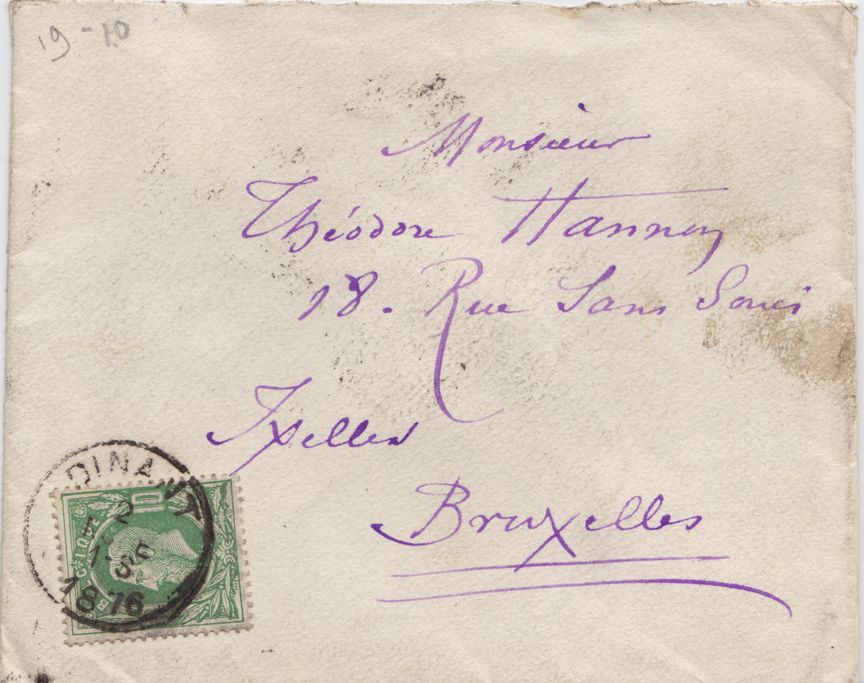 19-10
Monsieur
Théodore Hannon
18. Rue Sans Souci
Ixelles
Bruxelles
DINANT
2
1876
10